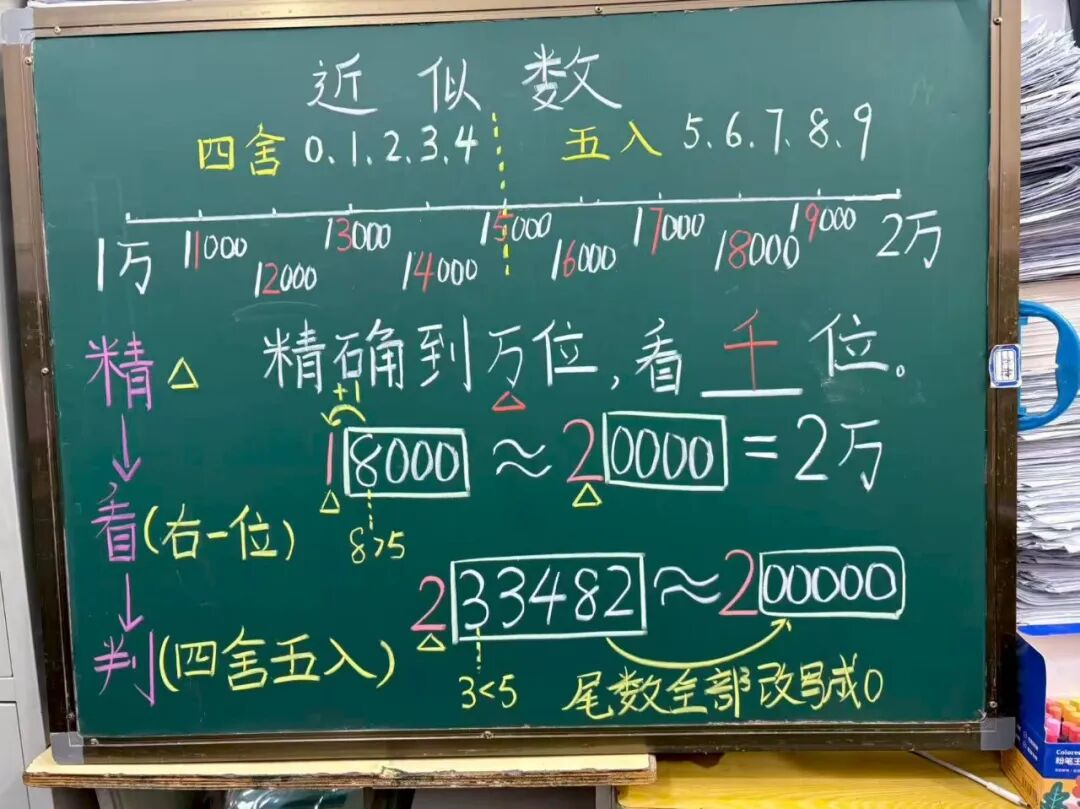 近似数
四舍 0、1、2、3、4 五入 5、6、7、8、9
1万 11000 12000 13000 14000 15000 16000 17000 18000 19000 2万
精 精确到万位，看 千 位。
+1
18000≈20000=2万
看(右一位) 8>5
233482≈200000
判(四舍五入) 3<5 尾数全部改写成0
粉笔王